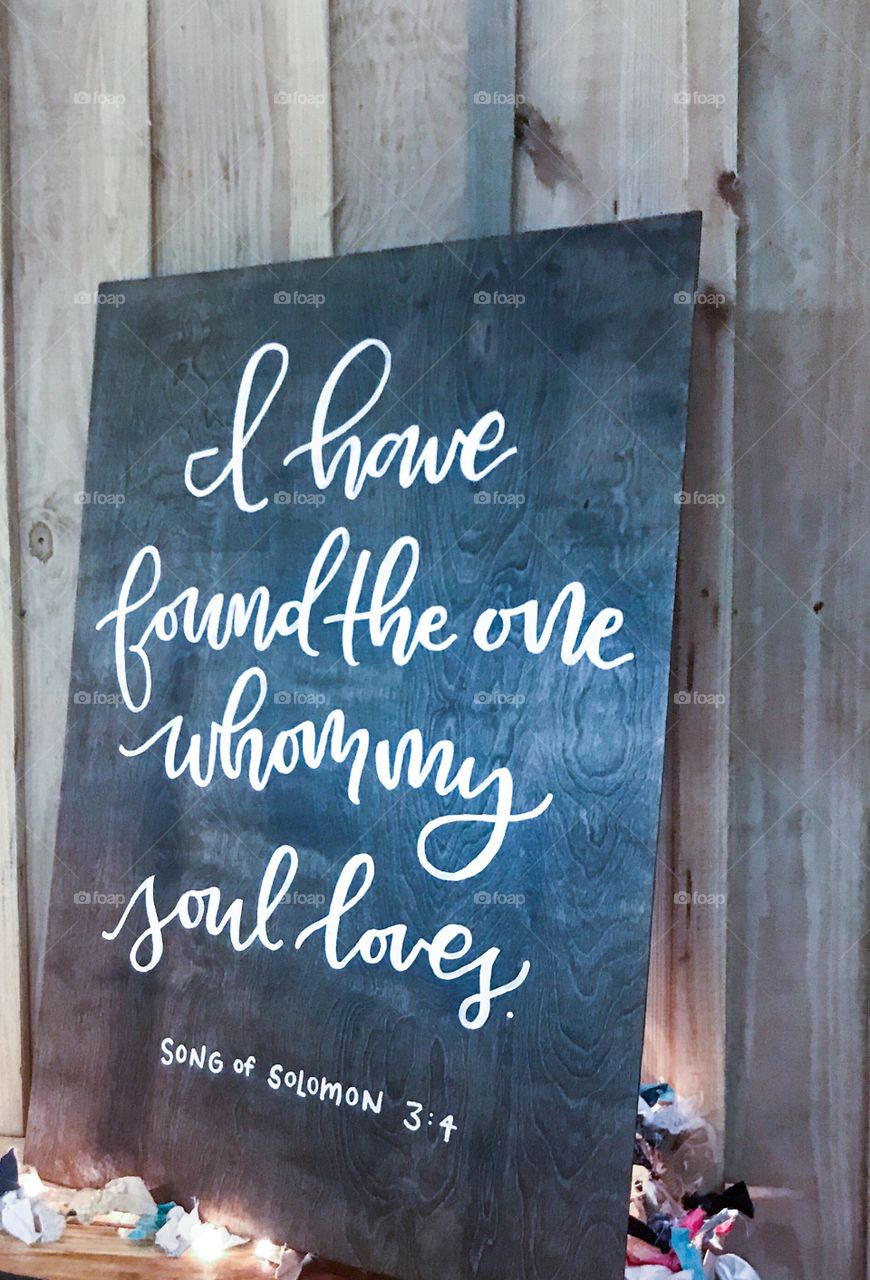 I have
found the one
whom my
soul loves.
SONG of SOLOMON 3:4
foap foap foap foap
foap foap foap foap
foap foap foap foap
foap foap foap foap
foap foap foap foap